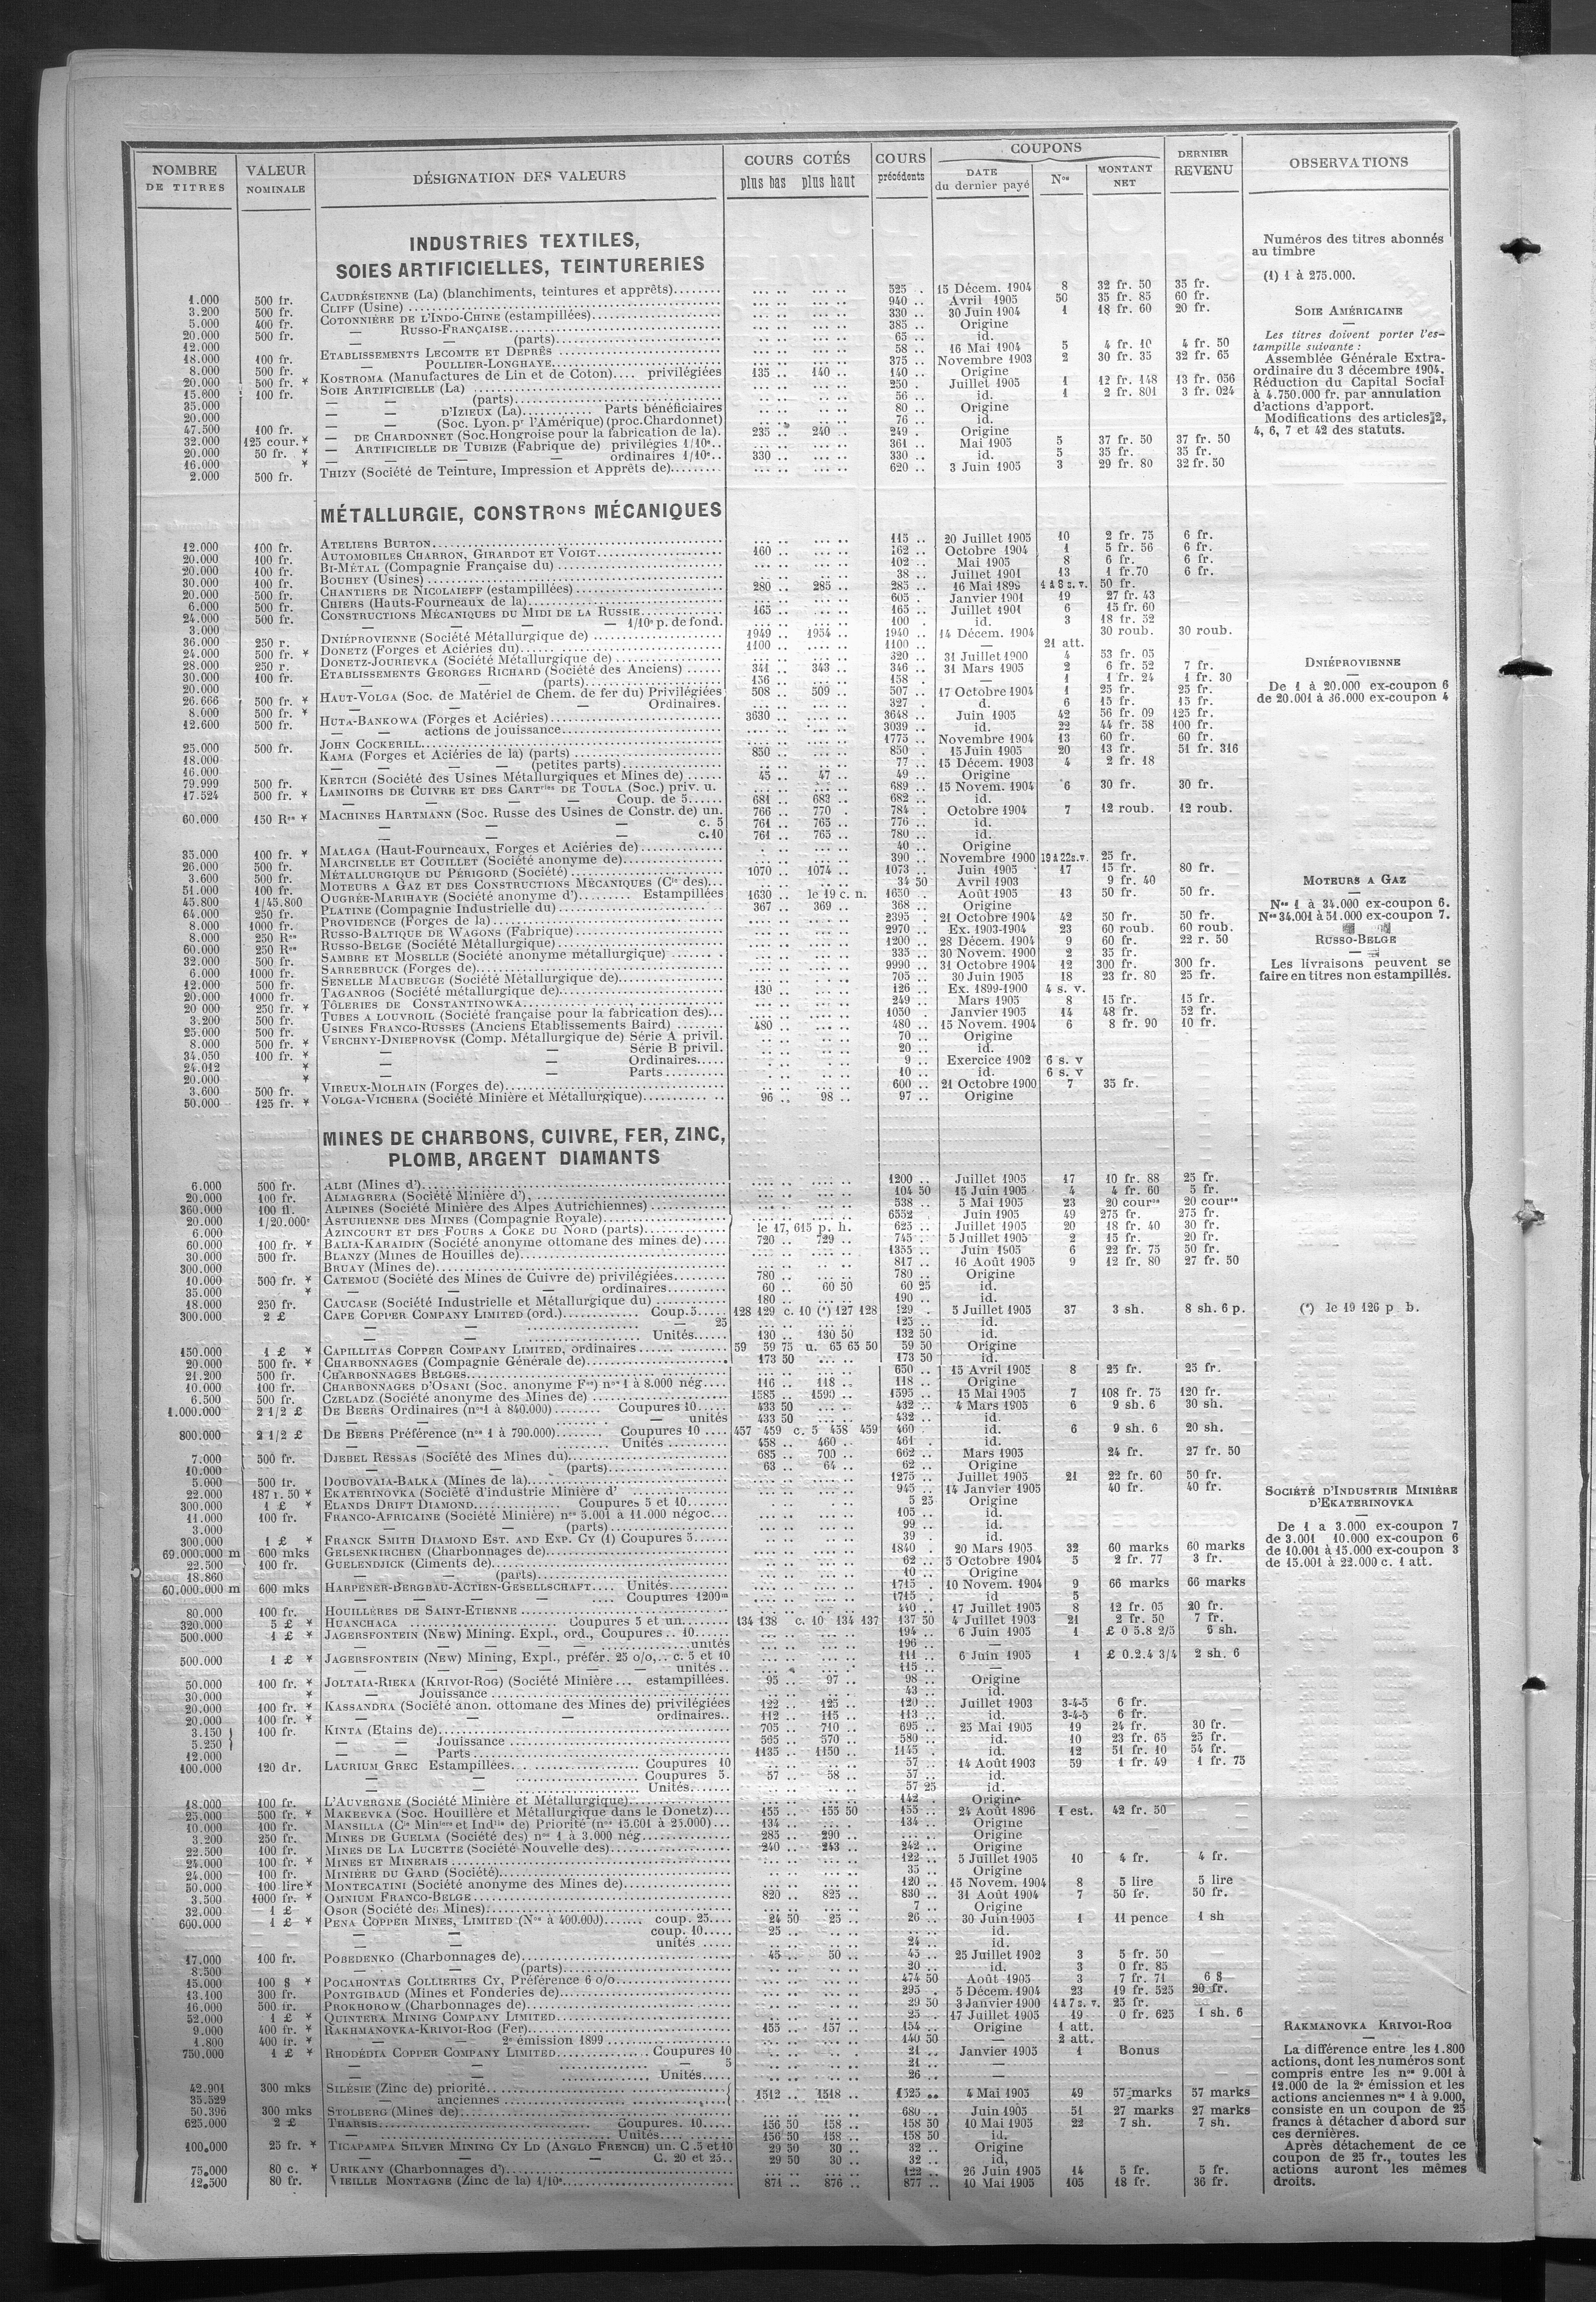 NOMBRE DE TITRES | VALEUR NOMINALE | DÉSIGNATION DES VALEURS | COURS COTÉS plus bas plus haut | COURS précédents | COUPONS DATE du dernier payé | Nos | MONTANT NET | DERNIER REVENU | OBSERVATIONS
INDUSTRIES TEXTILES,
SOIES ARTIFICIELLES, TEINTURERIES
1.000 500 fr. CAUDRÉSIENNE (La) (blanchiments, teintures et apprêts) 525 15 Décem. 1904 8 32 fr. 50 35 fr.
3.200 500 fr. CLIFF (Usine) 940 Avril 1905 50 35 fr. 85 60 fr.
5.000 400 fr. COTONNIÈRE DE L'INDO-CHINE (estampillées) 330 30 Juin 1904 1 18 fr. 60 20 fr.
20.000 500 fr. — RUSSO-FRANÇAISE 385 Origine
12.000 — — (parts) 65 id.
18.000 100 fr. ETABLISSEMENTS LECOMTE ET DEPRÈS 58 16 Mai 1904 5 4 fr. 10 4 fr. 50
8.000 500 fr. — POULLIER-LONGHAYE 375 Novembre 1903 2 30 fr. 35 32 fr. 65
20.000 500 fr. * KOSTROMA (Manufactures de Lin et de Coton) privilégiées 135 140 140 Origine
15.600 100 fr. SOIE ARTIFICIELLE (La) 250 Juillet 1905 1 12 fr. 148 13 fr. 056
35.000 — — (parts) 56 id. 1 2 fr. 801 3 fr. 024
20.000 — — D'IZIEUX (La) Parts bénéficiaires 80 Origine
47.500 100 fr. — — (Soc. Lyon. pr l'Amérique) (proc. Chardonnet) 76 id.
32.000 125 cour. * — DE CHARDONNET (Soc. Hongroise pour la fabrication de la) 235 240 249 Origine
20.000 50 fr. * — ARTIFICIELLE DE TUBIZE (Fabrique de) privilégies 1/10e 361 Mai 1905 5 37 fr. 50 37 fr. 50
16.000 * — — — ordinaires 1/10e 330 330 id. 5 35 fr. 35 fr.
2.000 500 fr. THIZY (Société de Teinture, Impression et Apprêts de) 620 3 Juin 1905 3 29 fr. 80 32 fr. 50
Numéros des titres abonnés
au timbre
(1) 1 à 275.000.
SOIE AMÉRICAINE
Les titres doivent porter l'es-
tampille suivante :
Assemblée Générale Extra-
ordinaire du 3 décembre 1904.
Réduction du Capital Social
à 4.750.000 fr. par annulation
d'actions d'apport.
Modifications des articles 2,
4, 6, 7 et 42 des statuts.
MÉTALLURGIE, CONSTRons MÉCANIQUES
12.000 100 fr. ATELIERS BURTON 115 20 Juillet 1905 10 2 fr. 75 6 fr.
20.000 100 fr. AUTOMOBILES CHARRON, GIRARDOT ET VOIGT 160 162 Octobre 1904 1 5 fr. 56 6 fr.
20.000 100 fr. BI-MÉTAL (Compagnie Française du) 102 Mai 1905 8 6 fr. 6 fr.
30.000 100 fr. BOUHEY (Usines) 38 Juillet 1901 13 1 fr. 70 6 fr.
20.000 500 fr. CHANTIERS DE NICOLAIEFF (estampillées) 280 285 285 16 Mai 1899 4 à 8 s. v. 50 fr.
6.000 500 fr. CHIERS (Hauts-Fourneaux de la) 605 Janvier 1901 19 27 fr. 43
24.000 500 fr. CONSTRUCTIONS MÉCANIQUES DU MIDI DE LA RUSSIE 165 165 Juillet 1901 6 15 fr. 60
3.000 — — — 1/10e p. de fond. 100 id. 3 18 fr. 52
36.000 250 r. DNIÉPROVIENNE (Société Métallurgique de) 1949 1954 1940 14 Décem. 1904 30 roub. 30 roub.
24.000 500 fr. * DONETZ (Forges et Aciéries du) 1100 1100 — 21 att.
28.000 250 r. DONETZ-JOURIEVKA (Société Métallurgique de) 320 31 Juillet 1900 4 53 fr. 05
30.000 100 fr. ETABLISSEMENTS GEORGES RICHARD (Société des Anciens) 341 343 346 31 Mars 1905 2 6 fr. 52 7 fr.
20.000 — — (parts) 156 158 — 1 1 fr. 24 1 fr. 30
26.666 500 fr. * HAUT-VOLGA (Soc. de Matériel de Chem. de fer du) Privilégiées 508 509 507 17 Octobre 1904 1 25 fr. 25 fr.
8.000 500 fr. * — — — Ordinaires. 327 d. 6 15 fr. 15 fr.
12.600 500 fr. HUTA-BANKOWA (Forges et Aciéries) 3630 3648 Juin 1905 42 56 fr. 09 125 fr.
— — actions de jouissance 3039 id. 22 44 fr. 58 100 fr.
25.000 500 fr. JOHN COCKERILL 1775 Novembre 1904 13 60 fr. 60 fr.
18.000 KAMA (Forges et Aciéries de la) (parts) 850 850 15 Juin 1905 20 13 fr. 51 fr. 316
16.000 — — — (petites parts) 77 15 Décem. 1903 4 2 fr. 18
79.999 500 fr. KERTCH (Société des Usines Métallurgiques et Mines de) 45 47 49 Origine
17.524 500 fr. * LAMINOIRS DE CUIVRE ET DES CARTries DE TOULA (Soc.) priv. u. 689 15 Novem. 1904 6 30 fr. 30 fr.
— — — — Coup. de 5 681 683 682 id.
60.000 150 Res * MACHINES HARTMANN (Soc. Russe des Usines de Constr. de) un. 766 770 784 Octobre 1904 7 12 roub. 12 roub.
— — — c. 5 761 765 776 id.
— — — c. 10 761 765 780 id.
35.000 100 fr. * MALAGA (Haut-Fourneaux, Forges et Aciéries de) 40 Origine
26.000 500 fr. MARCINELLE ET COUILLET (Société anonyme de) 390 Novembre 1900 19 à 22 s. v. 25 fr.
3.600 500 fr. MÉTALLURGIQUE DU PÉRIGORD (Société) 1070 1074 1073 Juin 1905 17 15 fr. 80 fr.
51.000 100 fr. MOTEURS A GAZ ET DES CONSTRUCTIONS MÉCANIQUES (Cie des) 34 50 Avril 1903 9 fr. 40
45.800 1/45.800 OUGRÉE-MARIHAYE (Société anonyme d') Estampillées 1630 le 19 c. n. 1650 Août 1905 13 50 fr. 50 fr.
64.000 250 fr. PLATINE (Compagnie Industrielle du) 367 369 368 Origine
8.000 1000 fr. PROVIDENCE (Forges de la) 2395 21 Octobre 1904 42 50 fr. 50 fr.
8.000 250 Res RUSSO-BALTIQUE DE WAGONS (Fabrique) 2970 Ex. 1903-1904 23 60 roub. 60 roub.
60.000 250 Res RUSSO-BELGE (Société Métallurgique) 1200 28 Décem. 1904 9 60 fr. 22 r. 50
32.000 500 fr. SAMBRE ET MOSELLE (Société anonyme métallurgique) 335 30 Novem. 1900 2 35 fr.
6.000 1000 fr. SARREBRUCK (Forges de) 9990 31 Octobre 1904 12 300 fr. 300 fr.
12.000 500 fr. SENELLE MAUBEUGE (Société Métallurgique de) 705 30 Juin 1905 18 23 fr. 80 25 fr.
20.000 1000 fr. TAGANROG (Société métallurgique de) 130 126 Ex. 1899-1900 4 s. v.
20 000 250 fr. * TÔLERIES DE CONSTANTINOWKA 249 Mars 1905 8 15 fr. 15 fr.
3.200 500 fr. TUBES A LOUVROIL (Société française pour la fabrication des) 1050 Janvier 1905 14 48 fr. 52 fr.
25.000 500 fr. USINES FRANCO-RUSSES (Anciens Etablissements Baird) 480 480 15 Novem. 1904 6 8 fr. 90 10 fr.
8.000 500 fr. * VERCHNY-DNIEPROVSK (Comp. Métallurgique de) Série A privil. 70 Origine
34.050 100 fr. * — — Série B privil. 20 id.
24.012 * — — Ordinaires 9 Exercice 1902 6 s. v
20.000 * — — Parts 10 id. 6 s. v
3.600 500 fr. VIREUX-MOLHAIN (Forges de) 600 21 Octobre 1900 7 35 fr.
50.000 125 fr. * VOLGA-VICHERA (Société Minière et Métallurgique) 96 98 97 Origine
DNIÉPROVIENNE
De 1 à 20.000 ex-coupon 6
de 20.001 à 36.000 ex-coupon 4
MOTEURS A GAZ
Nos 1 à 34.000 ex-coupon 6.
Nos 34.001 à 51.000 ex-coupon 7.
RUSSO-BELGE
Les livraisons peuvent se
faire en titres non estampillés.
MINES DE CHARBONS, CUIVRE, FER, ZINC,
PLOMB, ARGENT DIAMANTS
6.000 500 fr. ALBI (Mines d') 1200 Juillet 1905 17 10 fr. 88 25 fr.
20.000 100 fr. ALMAGRERA (Société Minière d') 104 50 15 Juin 1905 4 4 fr. 60 5 fr.
360.000 100 fl. ALPINES (Société Minière des Alpes Autrichiennes) 538 5 Mai 1905 23 20 cours 20 cours
20.000 1/20.000e ASTURIENNE DES MINES (Compagnie Royale) 6552 Juin 1905 49 275 fr. 275 fr.
6.000 AZINCOURT ET DES FOURS A COKE DU NORD (parts) le 17, 615 p. h. 625 Juillet 1905 20 18 fr. 40 30 fr.
60.000 100 fr. * BALIA-KARAIDIN (Société anonyme ottomane des mines de) 720 729 745 5 Juillet 1905 2 15 fr. 20 fr.
30.000 500 fr. BLANZY (Mines de Houilles de) 1355 Juin 1905 6 22 fr. 75 50 fr.
300.000 BRUAY (Mines de) 817 16 Août 1905 9 12 fr. 80 27 fr. 50
10.000 500 fr. * CATEMOU (Société des Mines de Cuivre de) privilégiées 780 780 Origine
35.000 * — — — ordinaires 60 60 50 60 25 id.
18.000 250 fr. CAUCASE (Société Industrielle et Métallurgique du) 180 190 id.
300.000 2 £ CAPE COPPER COMPANY LIMITED (ord.) Coup. 5 128 129 c. 10 (*) 127 128 129 5 Juillet 1905 37 3 sh. 8 sh. 6 p. (*) le 19 126 p b.
— — — 25 125 id.
— — Unités 130 130 50 132 50 id.
150.000 1 £ * CAPILLITAS COPPER COMPANY LIMITED, ordinaires 59 59 75 u. 65 65 50 59 50 Origine
20.000 500 fr. * CHARBONNAGES (Compagnie Générale de) 173 50 173 50 id.
21.200 500 fr. CHARBONNAGES BELGES 650 15 Avril 1905 8 25 fr. 25 fr.
10.000 100 fr. CHARBONNAGES D'OSANI (Soc. anonyme Fse) nos 1 à 8.000 nég 116 118 118 Origine
6.500 500 fr. CZELADZ (Société anonyme des Mines de) 1585 1590 1595 15 Mai 1905 7 108 fr. 75 120 fr.
1.000.000 2 1/2 £ DE BEERS Ordinaires (nos 1 à 840.000) Coupures 10 433 50 432 4 Mars 1905 6 9 sh. 6 30 sh.
— — — unités 433 50 432 id.
800.000 2 1/2 £ DE BEERS Préférence (nos 1 à 790.000) Coupures 10 457 459 c. 5 458 459 460 id. 6 9 sh. 6 20 sh.
— — Unités 458 460 461 id.
7.000 500 fr. DJEBEL RESSAS (Société des Mines du) 685 700 662 Mars 1905 24 fr. 27 fr. 50
10.000 — — (parts) 63 64 62 Origine
5.000 500 fr. DOUBOVAIA-BALKA (Mines de la) 1275 Juillet 1905 21 22 fr. 60 50 fr.
22.000 187 r. 50 * EKATERINOVKA (Société d'industrie Minière d' 945 14 Janvier 1905 40 fr. 40 fr.
300.000 1 £ * ELANDS DRIFT DIAMOND Coupures 5 et 10 5 25 Origine
11.000 100 fr. FRANCO-AFRICAINE (Société Minière) nos 5.001 à 11.000 négoc 105 id.
3.000 — — (parts) 99 id.
300.000 1 £ * FRANCK SMITH DIAMOND EST. AND EXP. CY (1) Coupures 5 39 id.
69.000.000 m 600 mks GELSENKIRCHEN (Charbonnages de) 1840 20 Mars 1905 32 60 marks 60 marks
22.500 100 fr. GUELENDJICK (Ciments de) 62 5 Octobre 1904 5 2 fr. 77 3 fr.
18.860 — — (parts) 10 Origine
60.000.000 m 600 mks HARPENER-BERGBAU-ACTIEN-GESELLSCHAFT Unités 1715 10 Novem. 1904 9 66 marks 66 marks
— — — — Coupures 1200m 1715 id 5
80.000 100 fr. HOUILLÈRES DE SAINT-ETIENNE 440 17 Juillet 1905 8 12 fr. 05 20 fr.
320.000 5 £ * HUANCHACA Coupures 5 et un. 134 138 c. 10 134 137 137 50 4 Juillet 1903 21 2 fr. 50 7 fr.
500.000 1 £ * JAGERSFONTEIN (NEW) Mining. Expl., ord., Coupures 10 194 6 Juin 1905 1 £ 0 5.8 2/5 6 sh.
— — — — unités 196 —
500.000 1 £ * JAGERSFONTEIN (NEW) Mining, Expl., préfér. 25 o/o, c. 5 et 10 111 6 Juin 1905 1 £ 0.2.4 3/4 2 sh. 6
— — — — — unités 115 —
50.000 100 fr. * JOLTAIA-RIEKA (KRIVOI-ROG) (Société Minière estampillées. 95 97 98 Origine
30.000 * — Jouissance 43 id.
20.000 100 fr. * KASSANDRA (Société anon. ottomane des Mines de) privilégiées 122 125 120 Juillet 1903 3-4-5 6 fr.
20.000 100 fr. * — — — ordinaires 112 115 113 id. 3-4-5 6 fr.
3.150 } 100 fr. KINTA (Etains de) 705 710 695 25 Mai 1905 19 24 fr. 30 fr.
5.250 } — — Jouissance 565 570 580 id. 10 23 fr. 65 25 fr.
12.000 — — Parts 1135 1150 1145 id. 12 51 fr. 10 54 fr.
100.000 120 dr. LAURIUM GREC Estampillées Coupures 10 57 14 Août 1903 59 1 fr. 49 1 fr. 75
— — Coupures 5. 57 58 57 id.
— — Unités 57 25 id.
18.000 100 fr. L'AUVERGNE (Société Minière et Métallurgique) 142 Origine
25.000 500 fr. * MAKEEVKA (Soc. Houillère et Métallurgique dans le Donetz) 155 155 50 155 24 Août 1896 1 est. 42 fr. 50
10.000 100 fr. MANSILLA (Cie Minière et Indlle de) Priorité (nos 15.001 à 25.000) 134 134 Origine
3.200 250 fr. MINES DE GUELMA (Société des) nos 1 à 3.000 nég 285 290 Origine
22.500 100 fr. MINES DE LA LUCETTE (Société Nouvelle des) 240 243 242 Origine
24.000 100 fr. * MINES ET MINERAIS 122 5 Juillet 1905 10 4 fr. 4 fr.
24.000 100 fr. MINIÈRE DU GARD (Société) 35 Origine
50.000 100 lire * MONTECATINI (Société anonyme des Mines de) 120 15 Novem. 1904 8 5 lire 5 lire
3.500 1000 fr. * OMNIUM FRANCO-BELGE 820 825 830 31 Août 1904 7 50 fr. 50 fr.
32.000 1 £ OSOR (Société des Mines) 7 Origine
600.000 1 £ * PENA COPPER MINES, LIMITED (Nos à 400.000) coup. 25 24 50 25 26 30 Juin 1905 1 11 pence 1 sh
— — coup. 10 25 id.
— — unités 24 id.
17.000 100 fr. POBEDENKO (Charbonnages de) 45 50 45 25 Juillet 1902 3 5 fr. 50
8.500 — — (parts) 20 id. 3 0 fr. 85
15.000 100 $ * POCAHONTAS COLLIERIES CY, Préférence 6 o/o 474 50 Août 1905 3 7 fr. 71 6 $
13.100 300 fr. PONTGIBAUD (Mines et Fonderies de) 295 5 Décem. 1904 23 19 fr. 525 20 fr.
16.000 500 fr. PROKHOROW (Charbonnages de) 29 50 3 Janvier 1900 4 à 7 s. v. 25 fr.
52.000 1 £ * QUINTERA MINING COMPANY LIMITED 25 17 Juillet 1905 19 0 fr. 625 1 sh. 6
9.000 400 fr. * RAKHMANOVKA-KRIVOI-ROG (Fer) 155 157 154 Origine 1 att.
1.800 400 fr. * — — 2e émission 1899 140 50 — 2 att.
750.000 1 £ * RHODÉDIA COPPER COMPANY LIMITED Coupures 10 21 Janvier 1905 1 Bonus
— — — 5 21 —
— — Unités 26 —
42.901 300 mks SILÉSIE (Zinc de) priorité 1512 1518 1525 4 Mai 1905 49 57 marks 57 marks
35.529 — anciennes
50.396 300 mks STOLBERG (Mines de) 680 Juin 1905 51 27 marks 27 marks
625.000 2 £ THARSIS Coupures. 10 156 50 158 158 50 10 Mai 1905 22 7 sh. 7 sh.
— Unités 156 50 158 158 50 id.
100.000 25 fr. * TICAPAMPA SILVER MINING CY LD (ANGLO FRENCH) un. C .5 et 10 29 50 30 32 Origine
— — — C. 20 et 25 29 50 30 32 id,
75.000 80 c. * URIKANY (Charbonnages d') 122 26 Juin 1905 14 5 fr. 5 fr.
12.500 80 fr. VIEILLE MONTAGNE (Zinc de la) 1/10e 871 876 877 10 Mai 1905 105 18 fr. 36 fr.
SOCIÉTÉ D'INDUSTRIE MINIÈRE
D'EKATERINOVKA
De 1 a 3.000 ex-coupon 7
de 3.001 10.000 ex-coupon 6
de 10.001 à 15.000 ex-coupon 3
de 15.001 à 22.000 c. 1 att.
RAKMANOVKA KRIVOI-ROG
La différence entre les 1.800
actions, dont les numéros sont
compris entre les nos 9.001 à
12.000 de la 2e émission et les
actions anciennes nos 1 à 9.000,
consiste en un coupon de 25
francs à détacher d'abord sur
ces dernières.
Après détachement de ce
coupon de 25 fr., toutes les
actions auront les mêmes
droits.